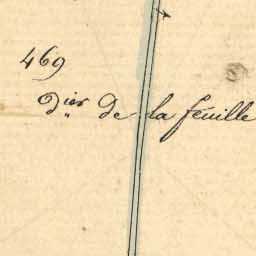 469
Dier de la feuille